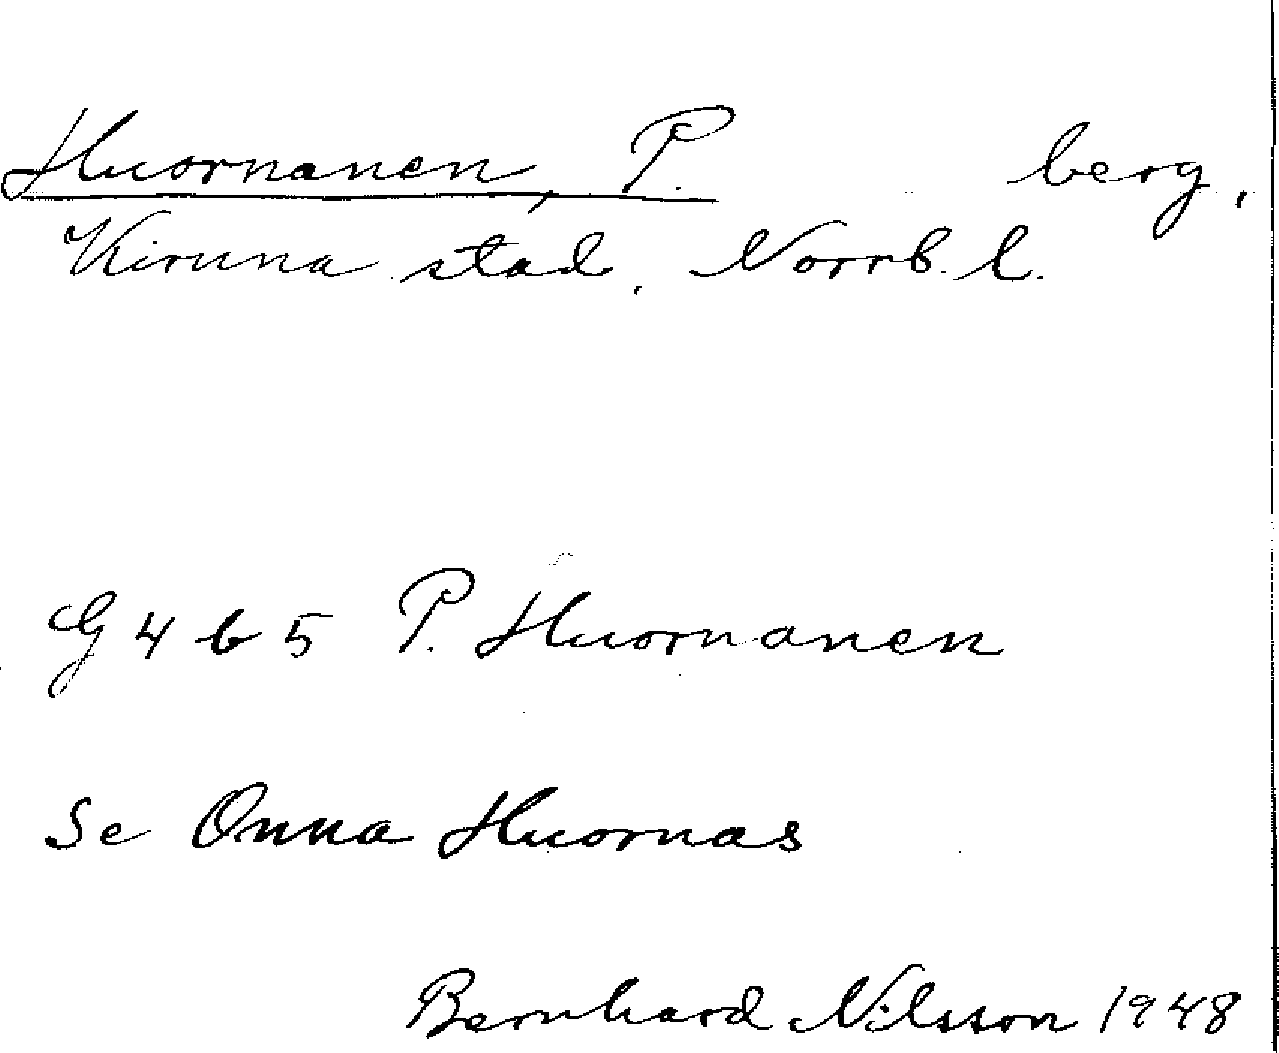 Huornanen, P. berg,
Kiruna stad, Norrb. l.
G 4 b 5 P. Huornanen
Se Onna Huornas
Bernhard Nilsson 1948